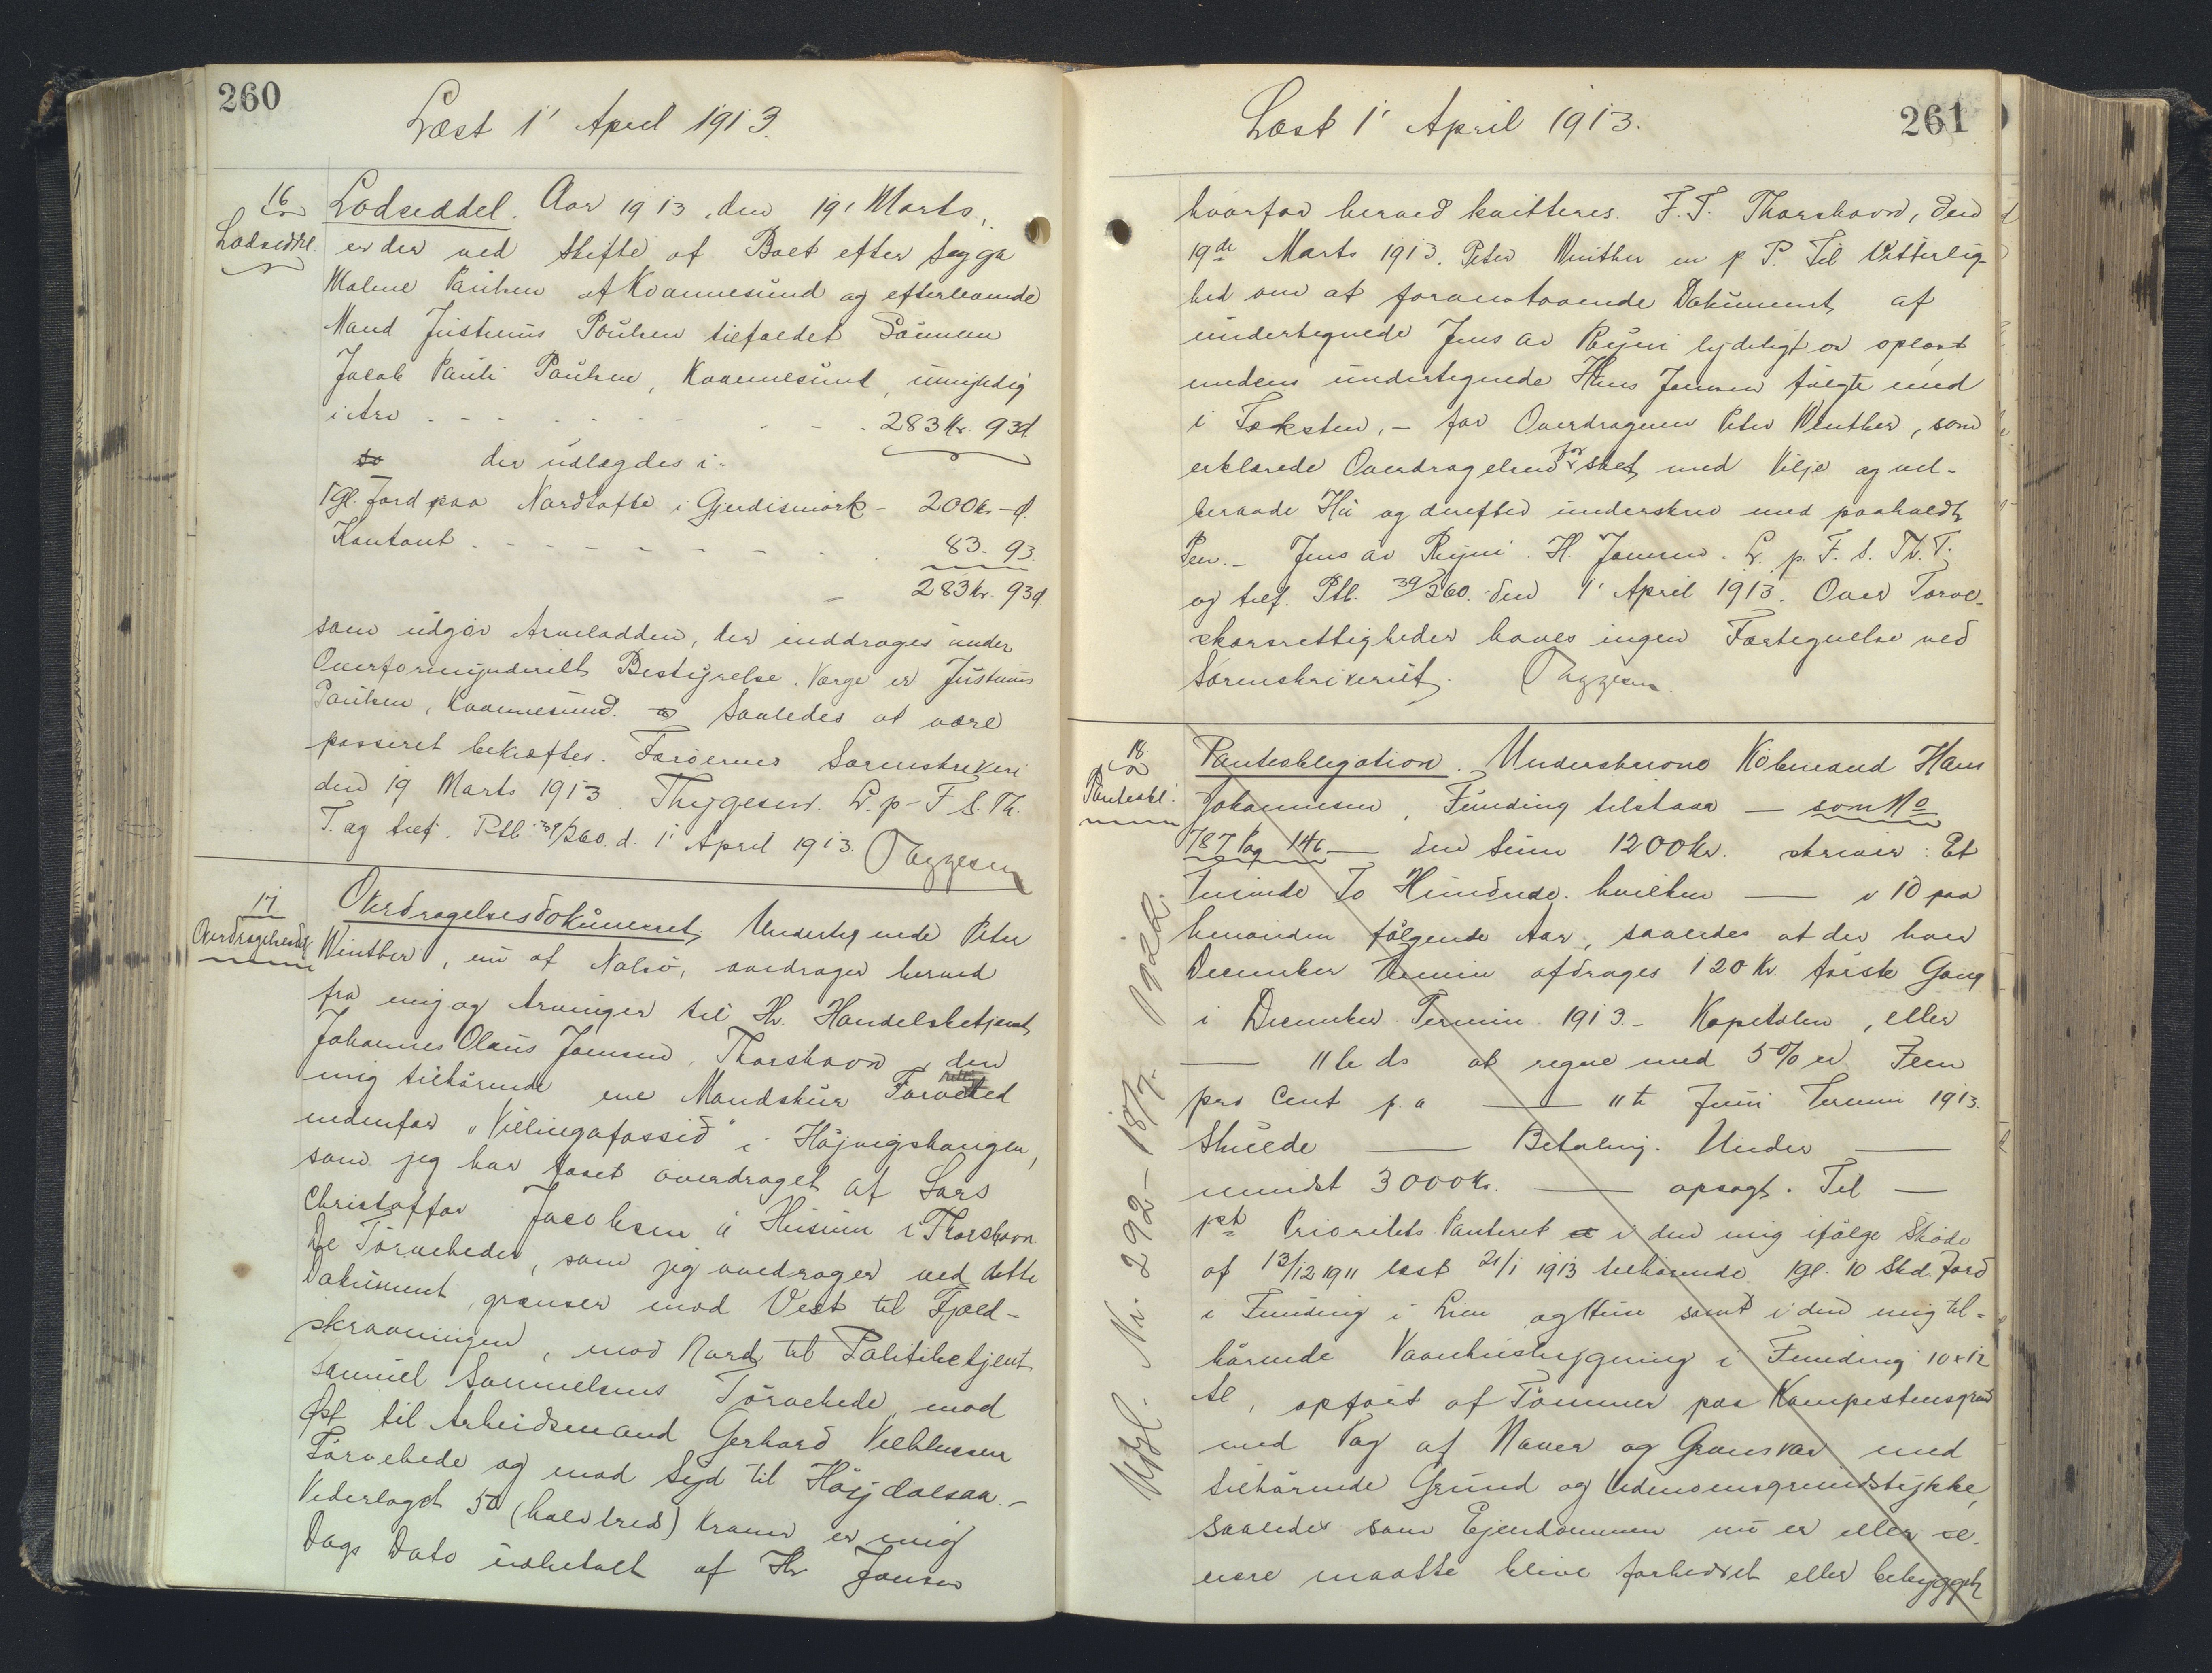 260
Læst 1' April 1913.
16
Lodseddel.
Lodseddel. Aar 1913, den 19' Marts,
er der ved Skifte af Boet efter Sigga
Malene Paulsen af Kvannesund og efterlevende
Mand Justinus Poulsen tilfaldet Sønnen
Jacob Pauli Paulsen, Kvannesund, umyndig
i Arv - - - - - - - 283 Kr. 93 Ø
der udlægdes i:
1 gl. Jord paa Nordtofte i Gjerdismørk - 200 Kr. - Ø.
Kontant - - - - - - - 83. 93.
283 Kr. 93 Ø.
som udgør Arvelodden, der inddrages under
Overformynderiets Bestyrelse. Værge er Justinus
Paulsen, Kvannesund. Saaledes at være
passeret bekræftes. Færøernes Sorenskriveri
den 19 Marts 1913. Thygesen. L. p. F. S. Th.
T. og tilf. Ptb. 39/260. d. 1' April 1913. Thygesen
17
Overdragelsesdok.
Overdragelsesdokument, Undertegnede Peter
Winther, nu af Nolsø, overdrager herved
fra mig og Arvinger til Hr. Handelsbetjent
Johannes Olaus Joensen, Thorshavn, den
mig tilhørende ene Mandskur Tørvested
nedenfor "Villingafossið" i Højvigshaugen,
som jeg har faaet overdraget af Lars
Christoffer Jacobsen á Húsum i Thorshavn
De Tørveheder, som jeg overdrager ved dette
Dokument, grænser mod Vest til Fjæld-
skraaningen, mod Nord til Politibetjent
Samuel Samuelsens Tørvehede, mod
Øst til Arbeidsmand Gerhard Vilhelmsen
Tørvehede og mod Syd til Højdalsaa. -
Vederlaget 50 (halvtreds) Kroner er mig
Dags Dato udbetalt af Hr Joensen
261
Læst 1' April 1913.
hvorfor herved kvitteres. F. T. Thorshavn, den
19de Marts 1913. Peter Winther m p P. Til Vitterlig-
hed om at foranstaaende Dokument af
undertegnede Jens av Reyni lydeligt er oplæst,
medens undertegnede Hans Joensen fulgte med
i Teksten, - for Overdrageren Peter Winther, som
erklærede Overdragelsen for sket med Vilje og vel-
beraade Hu og derefter underskrev med paaholdt
Pen. - Jens av Reyni. H. Joensen. L. p. F. S. Th. T.
og tilf. Ptb. 39/260. den 1' April 1913. Over Tørve-
skærsrettigheder haves ingen Fortegnelse ved
Sorenskriveriet. Thygesen.
18
Panteobl.
Panteobligation. Underskrevne Købmand Hans
Johannesen, Funding tilstaar - som No
787 Pag 146 - den Sum 1200 Kr. skriver: Et
Tusinde To Hundrede. hvilken - i 10 paa
hinanden følgende Aar, saaledes at der hver
December Termin afdrages 120 Kr. første Gang
i December Termin 1913 - Kapitalen, eller
- 11te ds at regne med 5% er Fem
pro Cent p. a - 11te Juni Termin 1913.
Skulde - Betaling. Under -
mindst 3000 Kr. - opsagt. Til -
1ste Prioritets Panteret i den mig ifølge Skøde
af 13/12 1911 læst 21/1 1913 tilhørende 1 gl. 10 Skd. Jord
i Funding i Lien og Hun samt i den mig til-
hørende Vaanhusbygning i Funding 10 x 12
Al, opført af Tømmer paa Kampestensgrund
med Tag af Næver og Grønsvær med
tilhørende Grund og Udenomsgrundstykke,
saaledes som Ejendommen nu er eller se-
nere maatte blive forbedret eller bebygget
Udgl. Nr. 292 - 18/7 - 1922.